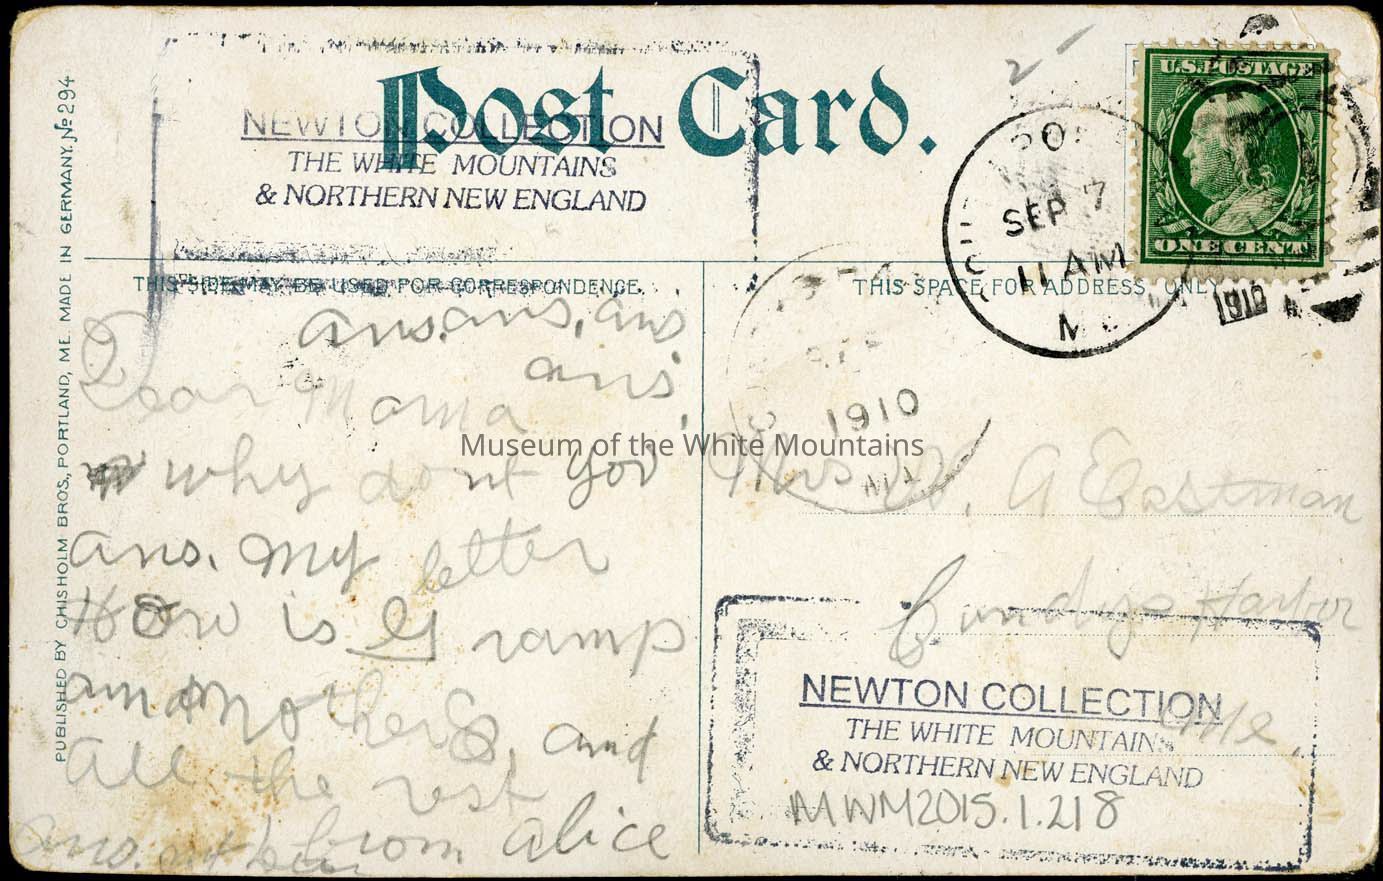 Post Card.
NEWTON COLLECTION
THE WHITE MOUNTAINS
& NORTHERN NEW ENGLAND
U.S. POSTAGE
ONE CENT
SEP 7
11 AM
1910
THIS SIDE MAY BE USED FOR CORRESPONDENCE.
THIS SPACE FOR ADDRESS ONLY
PUBLISHED BY CHISHOLM BROS., PORTLAND, ME. MADE IN GERMANY. № 294
ans. ans, ans
ans,
Dear Mama
why dont you
ans. my letter
How is G ramp
and Mother E, and
all the rest
from Alice
ans.
1910
Mrs A E Eastman
Cundys Harbor
Me.
Museum of the White Mountains
NEWTON COLLECTION
THE WHITE MOUNTAINS
& NORTHERN NEW ENGLAND
MWM2015.1.218